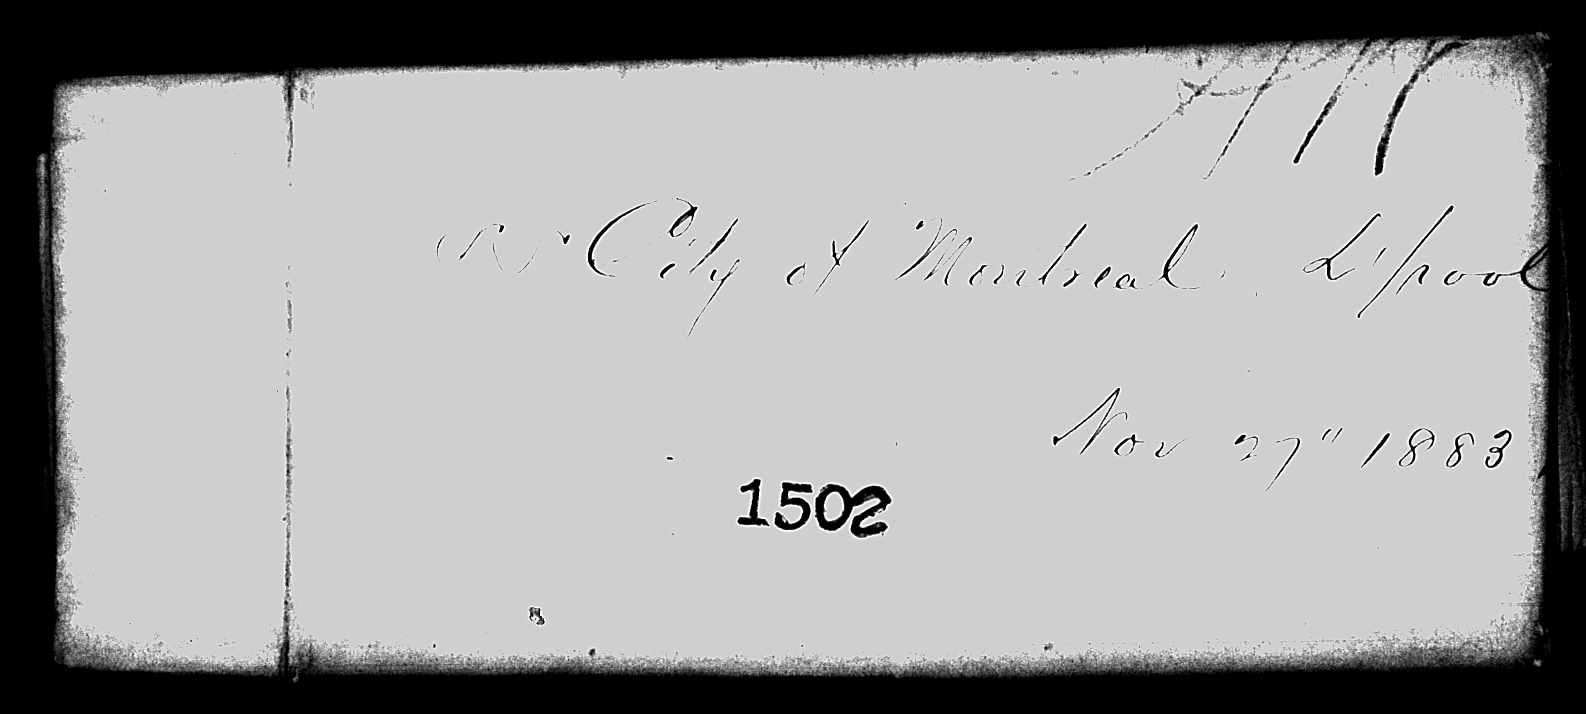 City of Montreal. L'pool
Nov 27" 1883
1502